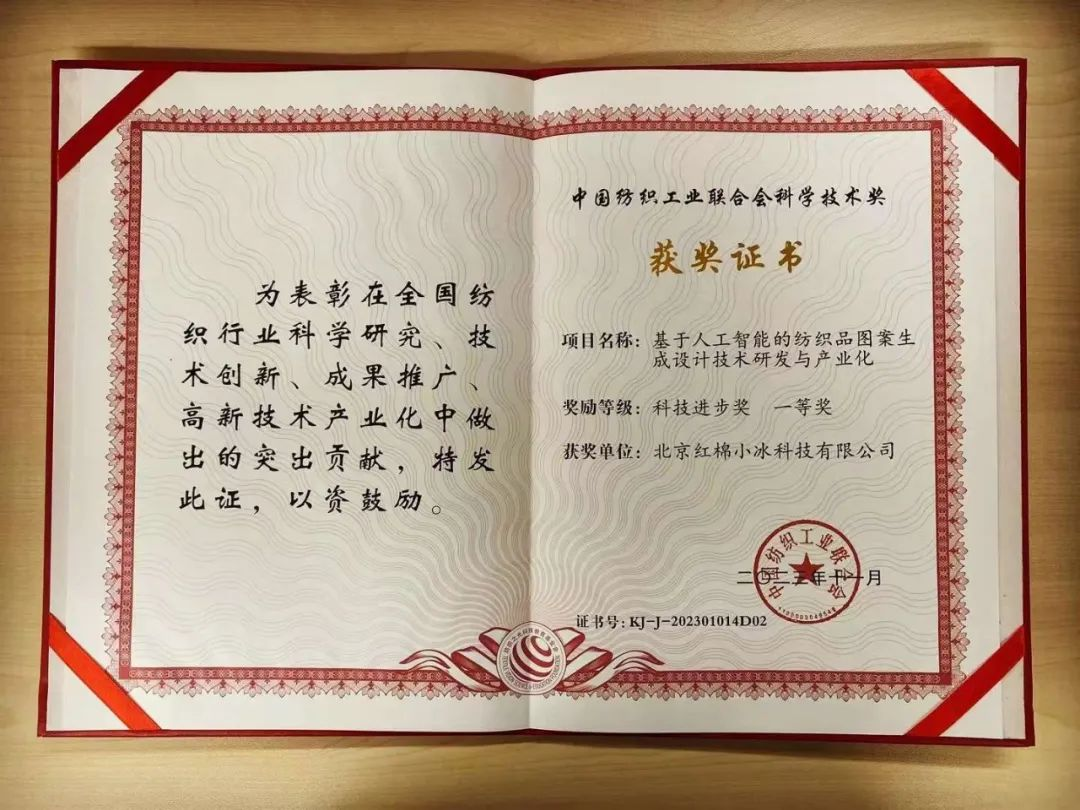 为表彰在全国纺
织行业科学研究、技
术创新、成果推广、
高新技术产业化中做
出的突出贡献，特发
此证，以资鼓励。
中国纺织工业联合会科学技术奖
获奖证书
项目名称：基于人工智能的纺织品图案生
成设计技术研发与产业化
奖励等级：科技进步奖 一等奖
获奖单位：北京红棉小冰科技有限公司
中国纺织工业联合会
二〇二三年十一月
证书号：KJ-J-202301014D02